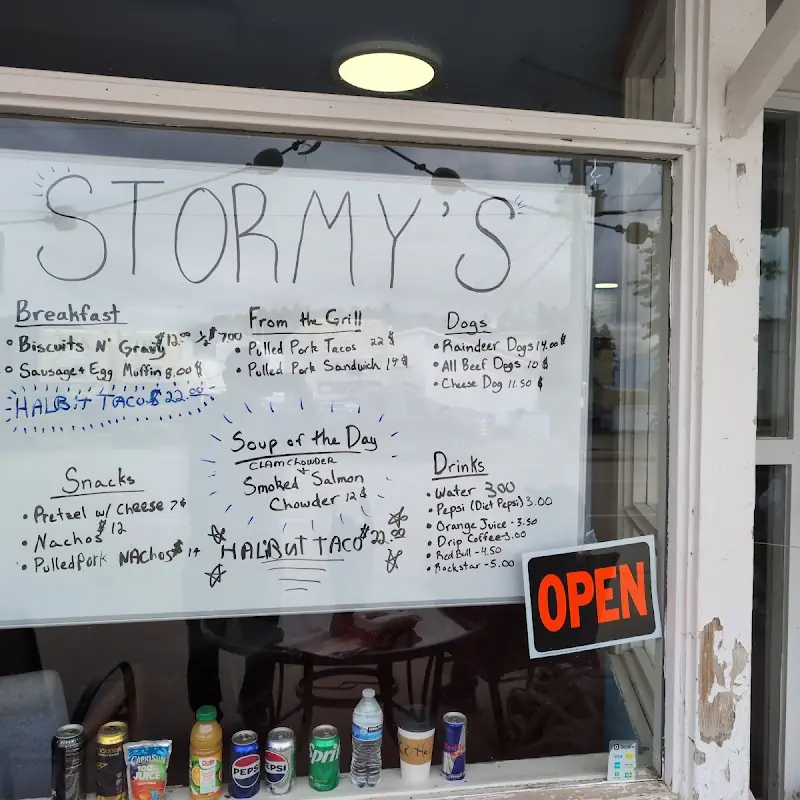 STORMY'S
Breakfast
• Biscuits N' Gravy $12.00 ½ $ 7.00
• Sausage + Egg Muffin 8.00 $
HALBUT TACO $ 22.00
From the Grill
• Pulled Pork Tacos 22 $
• Pulled Pork Sandwich 14 $
Dogs
• Raindeer Dogs 14.00 $
• All Beef Dogs 10 $
• Cheese Dog 11.50 $
Soup of the Day
CLAM CHOWDER
+
Smoked Salmon
Chowder 12 $
HALIBUT TACO $ 22.00
Snacks
• Pretzel w/ Cheese 7 $
• Nachos $12
• Pulled Pork NACHOS $ 14
Drinks
• Water 3.00
• Pepsi (Diet Pepsi) 3.00
• Orange Juice - 3.50
• Drip Coffee - 3.00
• Red Bull - 4.50
• Rockstar - 5.00
OPEN
CAPRI SUN
100%
JUICE
Dole
PEPSI
PEPSI
Sprite